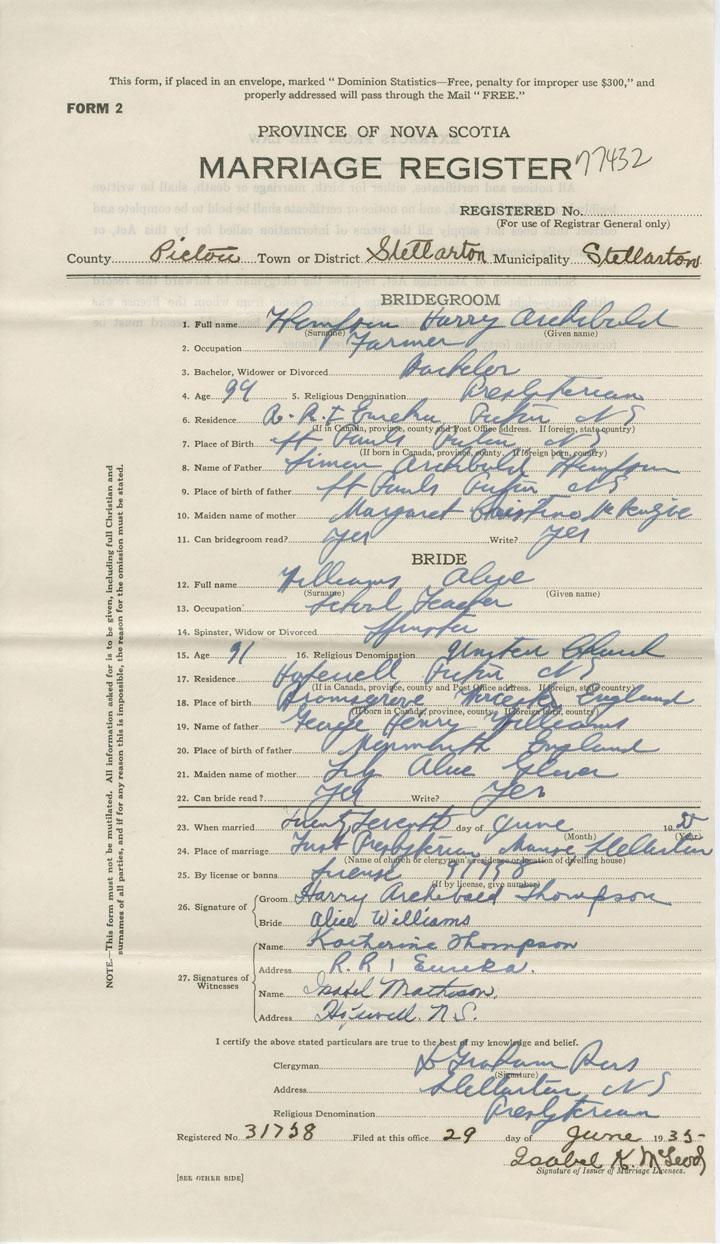 This form, if placed in an envelope, marked " Dominion Statistics—Free, penalty for improper use $300," and
properly addressed will pass through the Mail " FREE."
FORM 2
PROVINCE OF NOVA SCOTIA
MARRIAGE REGISTER 77432
REGISTERED No.
(For use of Registrar General only)
County Pictou Town or District Stellarton Municipality Stellarton
BRIDEGROOM
1. Full name Thompson Harry Archibald
(Surname) (Given name)
2. Occupation Farmer
3. Bachelor, Widower or Divorced Bachelor
4. Age 5. Religious Denomination Presbyterian
6. Residence Eureka Pictou N S
(If in Canada, province, county and Post Office address. If foreign, state country)
7. Place of Birth St Pauls Pictou N S
(If born in Canada, province, county. If foreign born, country)
8. Name of Father Simon Archibald Thompson
9. Place of birth of father St Pauls Pictou N S
10. Maiden name of mother Margaret Christine McKenzie
11. Can bridegroom read? Yes Write? Yes
BRIDE
12. Full name Williams Alice
(Surname) (Given name)
13. Occupation School Teacher
14. Spinster, Widow or Divorced Spinster
15. Age 16. Religious Denomination United Church
17. Residence Hopewell Pictou N S
(If in Canada, province, county and Post Office address. If foreign, state country)
18. Place of birth Bromsgrove England
(If born in Canada, province, county. If foreign born, country)
19. Name of father George Henry Williams
20. Place of birth of father England
21. Maiden name of mother Lily Alice Glover
22. Can bride read? Yes Write? Yes
23. When married Twenty Seventh day of June 19
(Month) (Year)
24. Place of marriage First Presbyterian Manse, Stellarton
(Name of church or clergyman's residence or location of dwelling house)
25. By license or banns License
(If by license, give number)
26. Signature of Groom Harry Archibald Thompson
Bride Alice Williams
27. Signatures of Witnesses Name Katherine Thompson
Address R.R 1 Eureka.
Name Isabel Matheson.
Address Hopewell. N.S.
I certify the above stated particulars are true to the best of my knowledge and belief.
Clergyman Graham
(Signature)
Address Stellarton N S
Religious Denomination Presbyterian
Registered No. 31758 Filed at this office 29 day of June 1935-
Isabel K. McLeod
Signature of Issuer of Marriage Licenses.
[SEE OTHER SIDE]
NOTE.—This form must not be mutilated. All information asked for is to be given, including full Christian and
surnames of all parties, and if for any reason this is impossible, the reason for the omission must be stated.